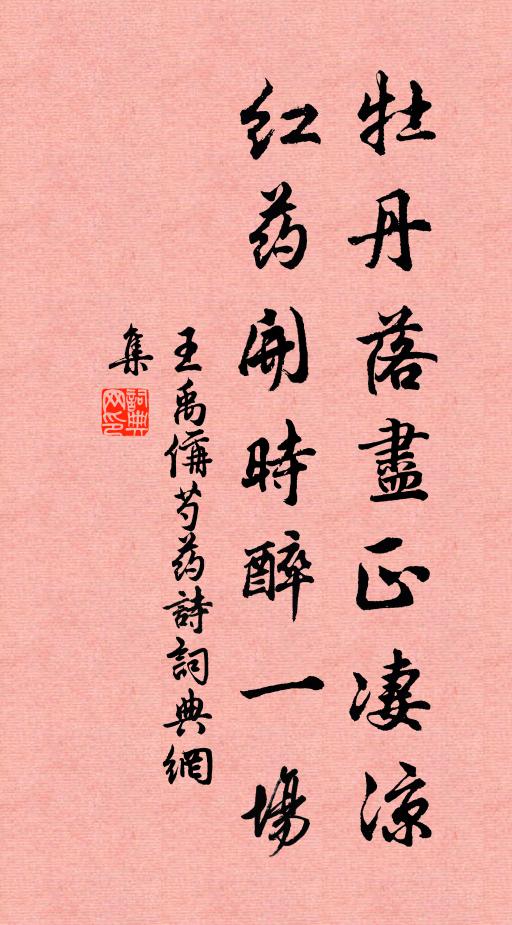 牡丹落盡正凄涼
红药開時醉一場
王禹偁芍药詩詞典網
集
詞典網印